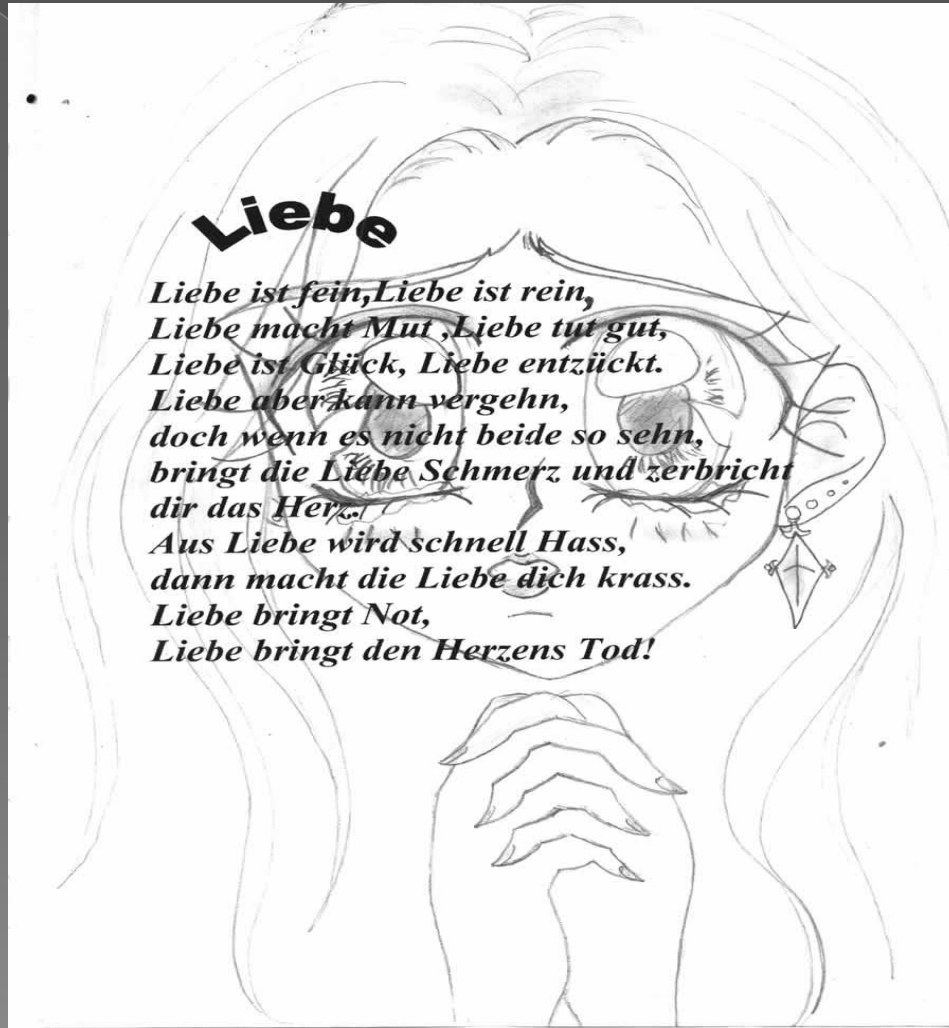 Liebe
Liebe ist fein,Liebe ist rein,
Liebe macht Mut ,Liebe tut gut,
Liebe ist Glück, Liebe entzückt.
Liebe aber kann vergehn,
doch wenn es nicht beide so sehn,
bringt die Liebe Schmerz und zerbricht
dir das Herz.
Aus Liebe wird schnell Hass,
dann macht die Liebe dich krass.
Liebe bringt Not,
Liebe bringt den Herzens Tod!